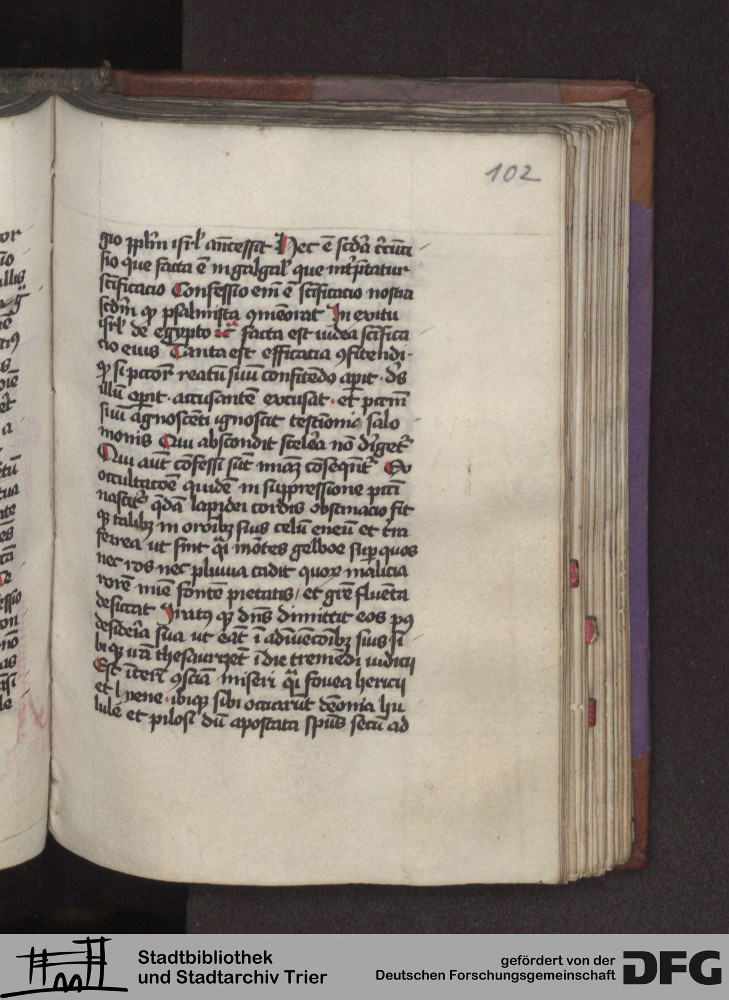 102
gio ppl̄m isrl̄ anc̄essit Hec ē scd̄a c̄cūci
sio que facta ē in galgal' que int̄p̄tatur
sc̄ificacio Confessio eni ē sc̄ificatio nostra
scdm̄ qp psalmista 9meōrat In exitu
isrl̄ de egypto ⁊c̄ facta est iudea sc̄ifica
cio eius Tanta est efficatia 9fitendi·
qp si pctor reatū suū confitēdo apit· ds̄
illū opit· accusantē excusat· et pctm̄
suū agnoscēti ignoscit testiomō salo
monis Qui abscondit scelera nō dirget᷑
Qui aut cōfessi sūt miam cōseqnt᷑ Ex
occultatōe quidē in suppressione pcti
nascit᷑ qdā lapidei cordis obstinacio sit
qp talibꝫ in orōibꝫ suis celū eneū et tra
ferrea ut sint qi mōtes gelboe sup quos
nec ros nec pluuia cadit quoꝝ malicia
rorē mīe fontē pietatis / et grē fluēta
desiccat Iratꝰ qp dn̄s dimittit eos pꝰ
desideria sua ut eāt ī adīuēcōibꝫ suis si
bi qp irā thesaurizēt ī die tremēdi iudicij
Est iteri 9sciā miseri qi fouea hericij
et l yene ibiqꝫ sibi occurrūt dēonia hu
lule et pilosi dū apostata spūs secū ad
Stadtbibliothek
und Stadtarchiv Trier
gefördert von der
Deutschen Forschungsgemeinschaft
DFG